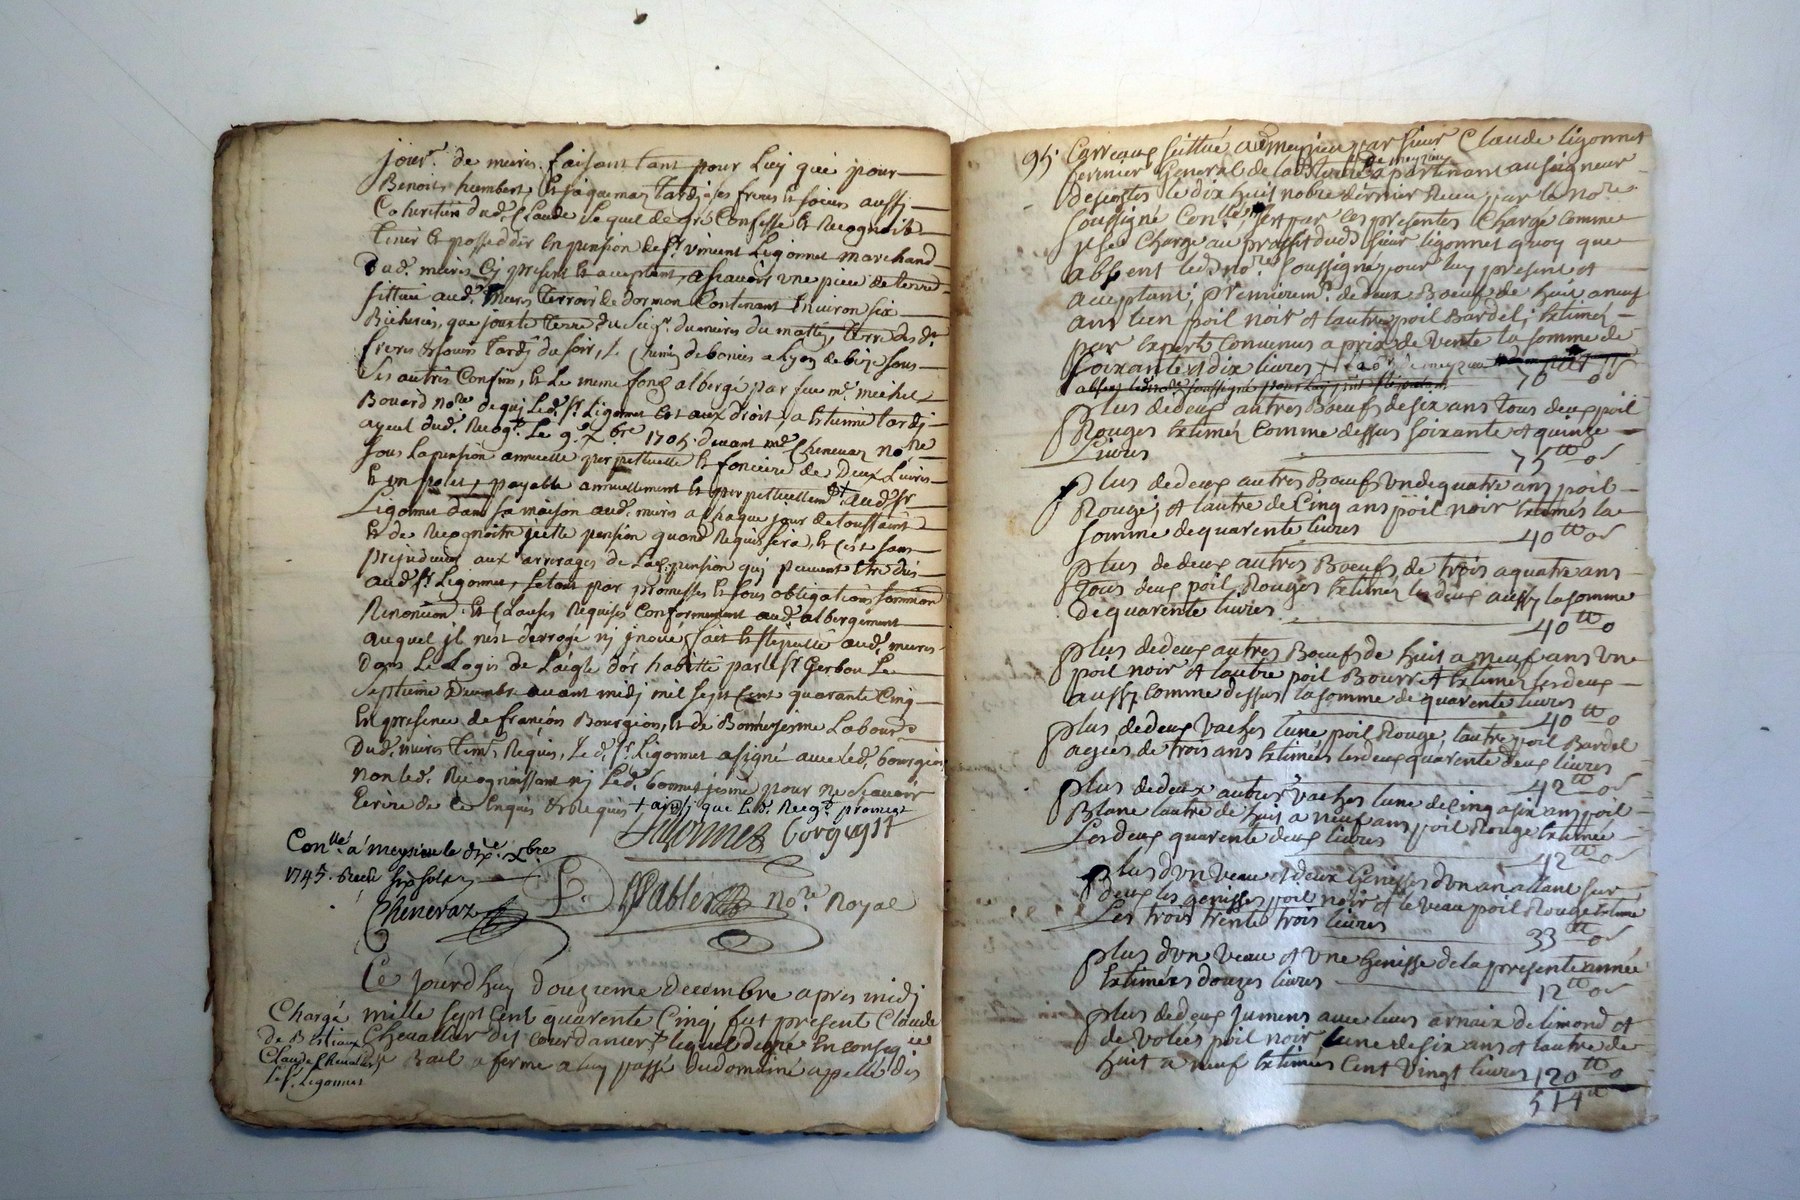 jour.r de mures faisant tant pour luy que pour
Benoit humbert et jaquemaz tardj ses freres et soeurs aussj
dud. Claude lequel de gré Confesse et Recognoit
tenir et posseder en pension de Sr. vincent Ligonnet marchand
Dud. mures Cy present et aceptant, ascavoir une piece de terre
sittuée aud. mures terroir de dormon Contenant Environ six
Bicherées, que jouxte terre du Sieur dumures du matin, terre desd.
freres et soeurs tardj du soir, le Chemin de a Lyon de bize sous
ses autres Confins, et le meme fond albergé par feu me. michel
Bouard nore. de qui led. Sr. Ligonnet est aux droits, a Estienne tardj
ayeul dud. Recogt. Le 9e. xbre 1705. devant me. Cheneraz nore
sous la pension annuelle perpetuelle et fonciere de Deux Livres
et un polet, payable annuellement et perpetuellemt. + aud. Sr.
Ligonnet dans sa maison aud. mures a chaque jour de toussaint
et de Recognoitre jcelle pension quand Requis sera, et c'est sans
prejudice aux arrerages de lad. pension quj peuvent etre dus
aud. Sr. Ligonnet, se tout par promesses et sous obligations
Renonciaon. et Clauses Requises Conformement aud. albergement
auquel jl n'est derrogé nj jnové, fait et stipullé aud. mures
dans Le Logis de Laigle dor habitté par le Sr. Gerbou Le
Septieme Decembre avant midj mil sept Cent quarante Cinq
En presence de françois Bourgion, et de Labour.
Dud. mures temts. Requis, Led. Sr. Ligonnet a signé avec led. bourgion
non led. Recognoissant nj Led. pour ne scavoir
Ecrire de Ce Enquis et Requis + ainsj que led. Recogt. promest
Ligonnet
Conllé. a meysieu le dixe. xbre
1745. Receu six sols
Cheneraz
nore. Royal
Ce jourdhuy douzieme decembre apres midj
Chargé
mille sept Cent quarente Cinq, fut present Claude
de Bestiaux
Chevallier dit Courdanier + lequel de gré En conseqce
Claude Chevallier
Bail a ferme a luy passé du domaine apellé des
le Sr. Ligonnet
95.
Carreaux sittué a meyzieu par sieur Claude ligonnet
fermier General de lad. Terre de meyzieu apartenant au seigneur
le dix huit nobre dernier Receu par le nore.
soussigné Conllé, sest par Ces presentes Chargé comme
Il se Charge au proffit dud. sieur ligonnet quoy que
absent led. nore. soussigné pour luy present et
acceptant; premieremt. de deux Boeufs de huit a neuf
ans lun poil noir et lautre poil Bardel; Extimés
par Expert Convenus a prix de vente la somme de
soixante et dix livres
70 tt 0 s
Plus de deux autres Boeufs de six ans tous deux poil
Rouges Extimés comme dessus soixante et quinze
Livres
75 tt 0 s
Plus de deux autres Boeufs un de quatre ans poil
Rouge; et lautre de Cinq ans poil noir Extimés la
somme de quarente livres
40 tt 0 s
Plus de deux autres Boeufs de trois a quatre ans
Tous deux poil Rouges Extimés les deux aussy la somme
de quarente livres
40 tt 0
Plus de deux autres Boeufs de huit a neuf ans Un
poil noir et lautre poil Bourret Extimés les deux
aussy comme dessus la somme de quarente livres
40 tt 0
Plus de deux vaches lune poil Rouge, lautre poil Bardel
agées de trois ans Extimées les deux quarente deux livres
42 tt 0 s
Plus de deux autres vaches lune de Cinq a six ans poil
Blanc lautre de huit a neuf ans poil Rouge Extimée
Les deux quarente deux livres
42 tt 0 s
Plus d'un veau et deux Genisses d'un an allant sur
deux les genisses poil noir et le veau poil Rouge Extimé
Les trois trente trois livres
33 tt 0 s
Plus d'un veau et d'une Genisse de la presente année
Extimés douzes livres
12 tt 0 s
Plus de deux Jumens avec leurs arnaix de limond et
de volées poil noir lune de six ans et lautre de
huit a neuf Extimées Cent Vingt livres
120 tt 0
514 tt